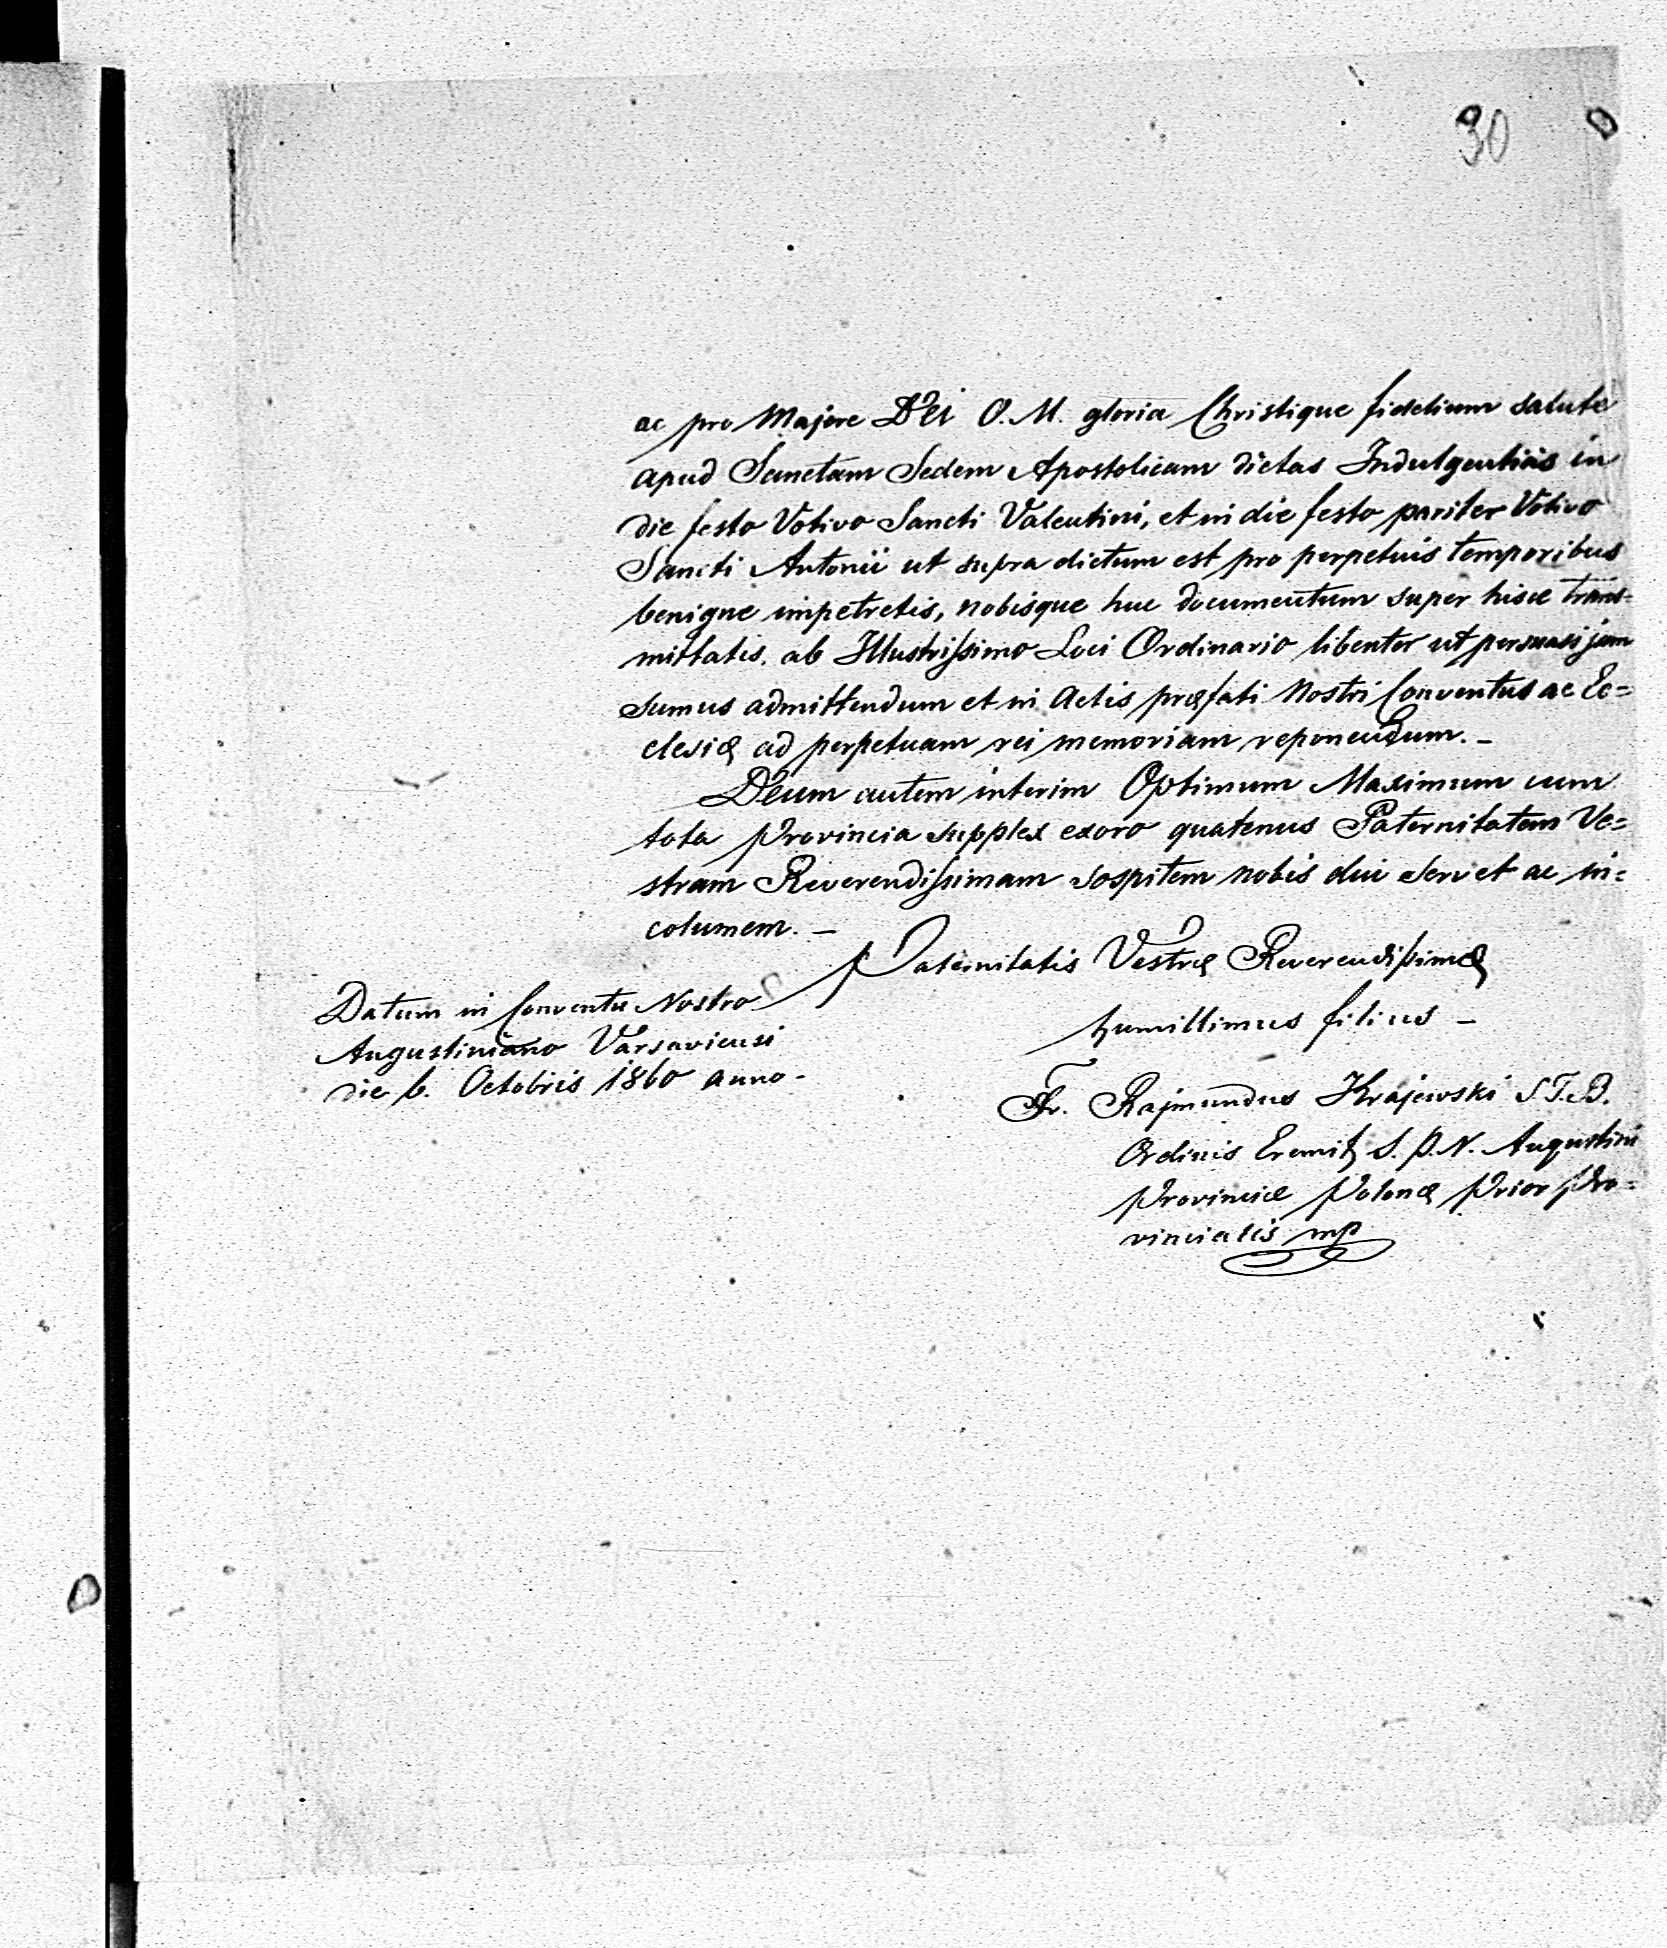 30
ac pro Majore DEi O. M. gloria Christique fidelium salute
apud Sanctam Sedem Apostolicam dictas Indulgentias in
die festo Votivo Sancti Valentini, et in die festo pariter Votivo
Sancti Antonii ut supra dictum est pro perpetuis temporibus
benigne impetretis, nobisque huc documentum super hisce trans=
mittatis. ab Illustrissimo Loci Ordinario libenter ut persuasi jam
sumus admittendum et in Actis præfati Nostri Conventus ac Ec=
clesiæ ad perpetuam rei memoriam reponendum. –
DEum autem interim Optimum Maximum cum
tota Provincia supplex exoro quatenus Paternitatem Ve=
stram Reverendissimam sospitem nobis diu servet ac in=
columem. –
Paternitatis Vestræ Reverendissimæ
humillimus filius –
Datum in Conventu Nostro
Augustiniano Varsaviensi
die 6. Octobris 1860 anno.
Fr. Rajmundus Krajewski S. T. B.
Ordinis Eremit. S. P. N. Augustini
Provinciæ Polonæ Prior Pro=
vincialis mp